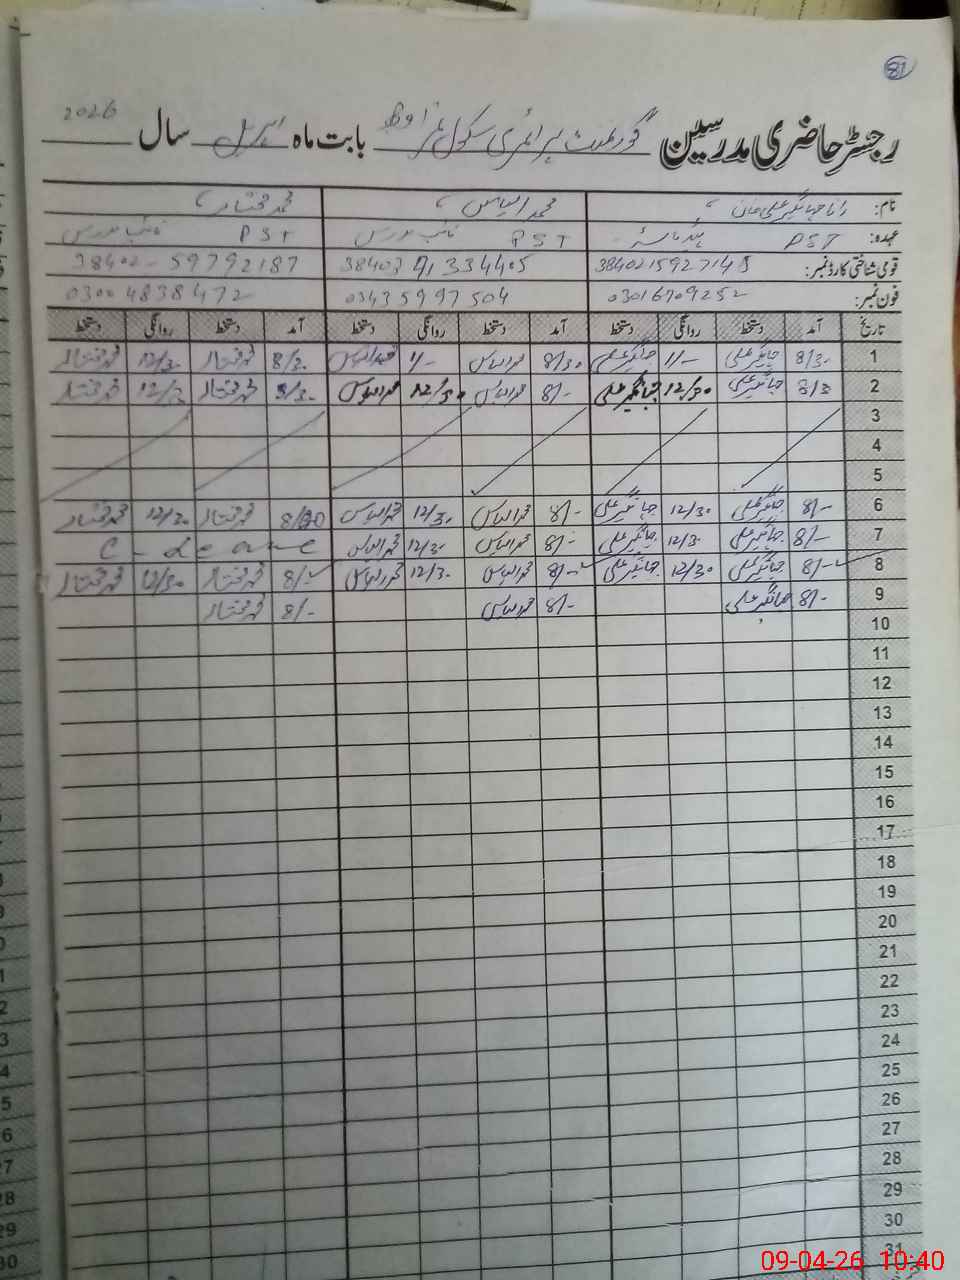 81
رجسٹر حاضری مدرسین گورنمنٹ پرائمری سکول بابت ماہ اپریل سال 2026
نام: رانا جہانگیر علی خان محمد الیاس محمد مختار
عہدہ: PST ہیڈ ماسٹر PST نائب مدرس PST نائب مدرس
قومی شناختی کارڈ نمبر: 38402-59792187
فون نمبر: 03016709252 03435997504 03004838472
تاریخ آمد دستخط روانگی دستخط آمد دستخط روانگی دستخط آمد دستخط روانگی دستخط
1 8/30 جہانگیر علی 1/- جہانگیر علی 8/30 محمد الیاس 1/- محمد الیاس 8/30 محمد مختار 12/30 محمد مختار
2 جہانگیر علی 12/30 جہانگیر علی 8/- محمد الیاس 12/30 محمد الیاس 8/30 محمد مختار 12/30 محمد مختار
3
4
5
6 8/- جہانگیر علی 12/30 جہانگیر علی 8/- محمد الیاس 12/30 محمد الیاس محمد مختار 12/30 محمد مختار
7 8/- جہانگیر علی 12/30 جہانگیر علی 8/- محمد الیاس 12/30 محمد الیاس C-Leave
8 8/- جہانگیر علی 12/30 جہانگیر علی 8/- محمد الیاس 12/30 محمد الیاس 8/- محمد مختار 12/30 محمد مختار
9 8/- جہانگیر علی 8/- محمد الیاس 8/- محمد مختار
10
11
12
13
14
15
16
17
18
19
20
21
22
23
24
25
26
27
28
29
30
31
09-04-26 10:40